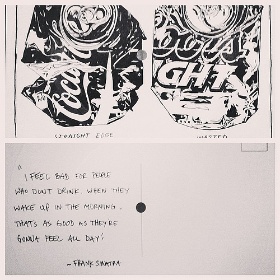 Coca
Coors
LIGHT
STRAIGHT EDGE
WASTED
"
I FEEL BAD FOR PEOPLE
WHO DON'T DRINK. WHEN THEY
WAKE UP IN THE MORNING,
THAT'S AS GOOD AS THEY'RE
GONNA FEEL ALL DAY"
~FRANK SINATRA